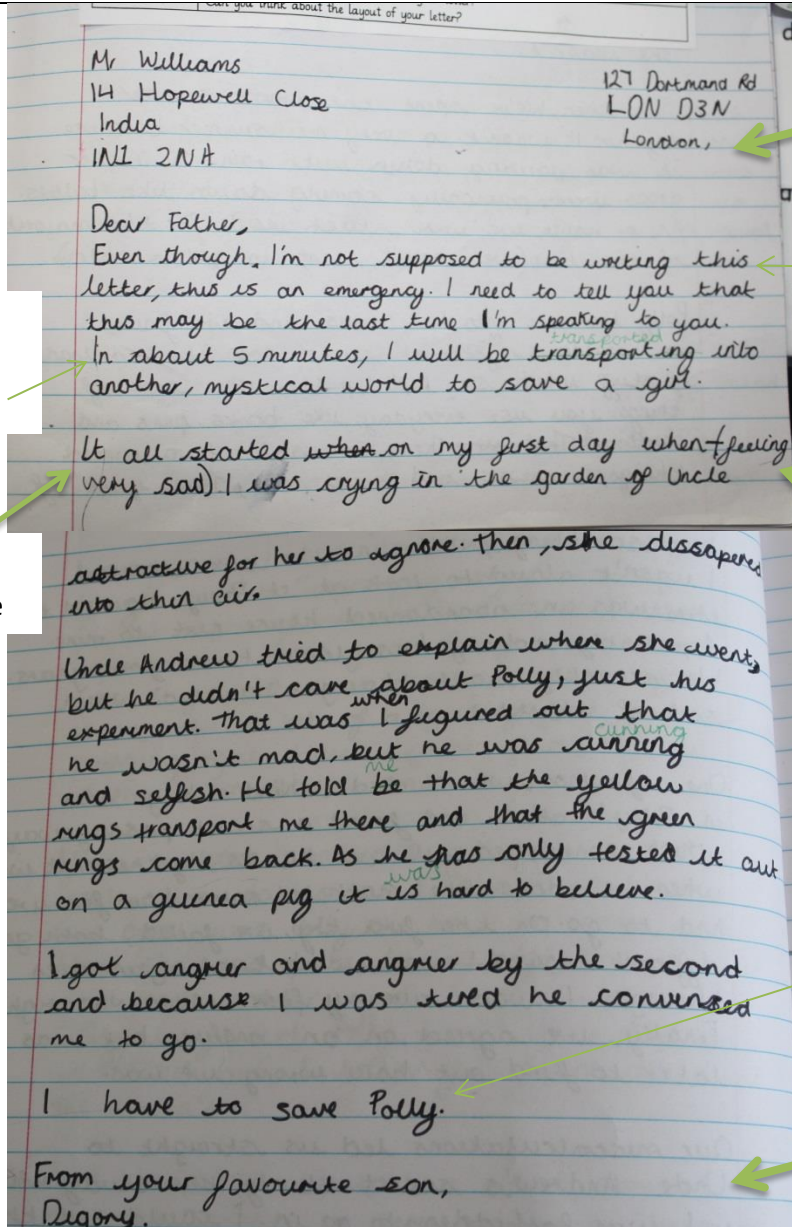 Can you think about the layout of your letter?
Mr Williams
14 Hopewell Close
India
IN1 2NA
127 Dortmand Rd
LON D3N
London,
Dear Father,
Even though. I'm not supposed to be writing this
letter, this is an emergency. I need to tell you that
this may be the last time I'm speaking to you.
transported
In about 5 minutes, I will be transporting into
another, mystical world to save a girl.
It all started when on my first day when (feeling
very sad) I was crying in the garden of Uncle
attractive for her to ignore. Then, she dissapered
into thin air.
Uncle Andrew tried to explain where she went,
but he didn't care about Polly, just his
experiment. That was when I fugured out that
cunning
he wasn't mad, but he was cunning
me
and selfish. He told be that the yellow
rings transport me there and that the green
rings come back. As he has only tested it out
was
on a guinea pig it is hard to believe.
I got angrier and angrier by the second
and because I was tired he convinsed
me to go.
I have to save Polly.
From your favourite son,
Digory.